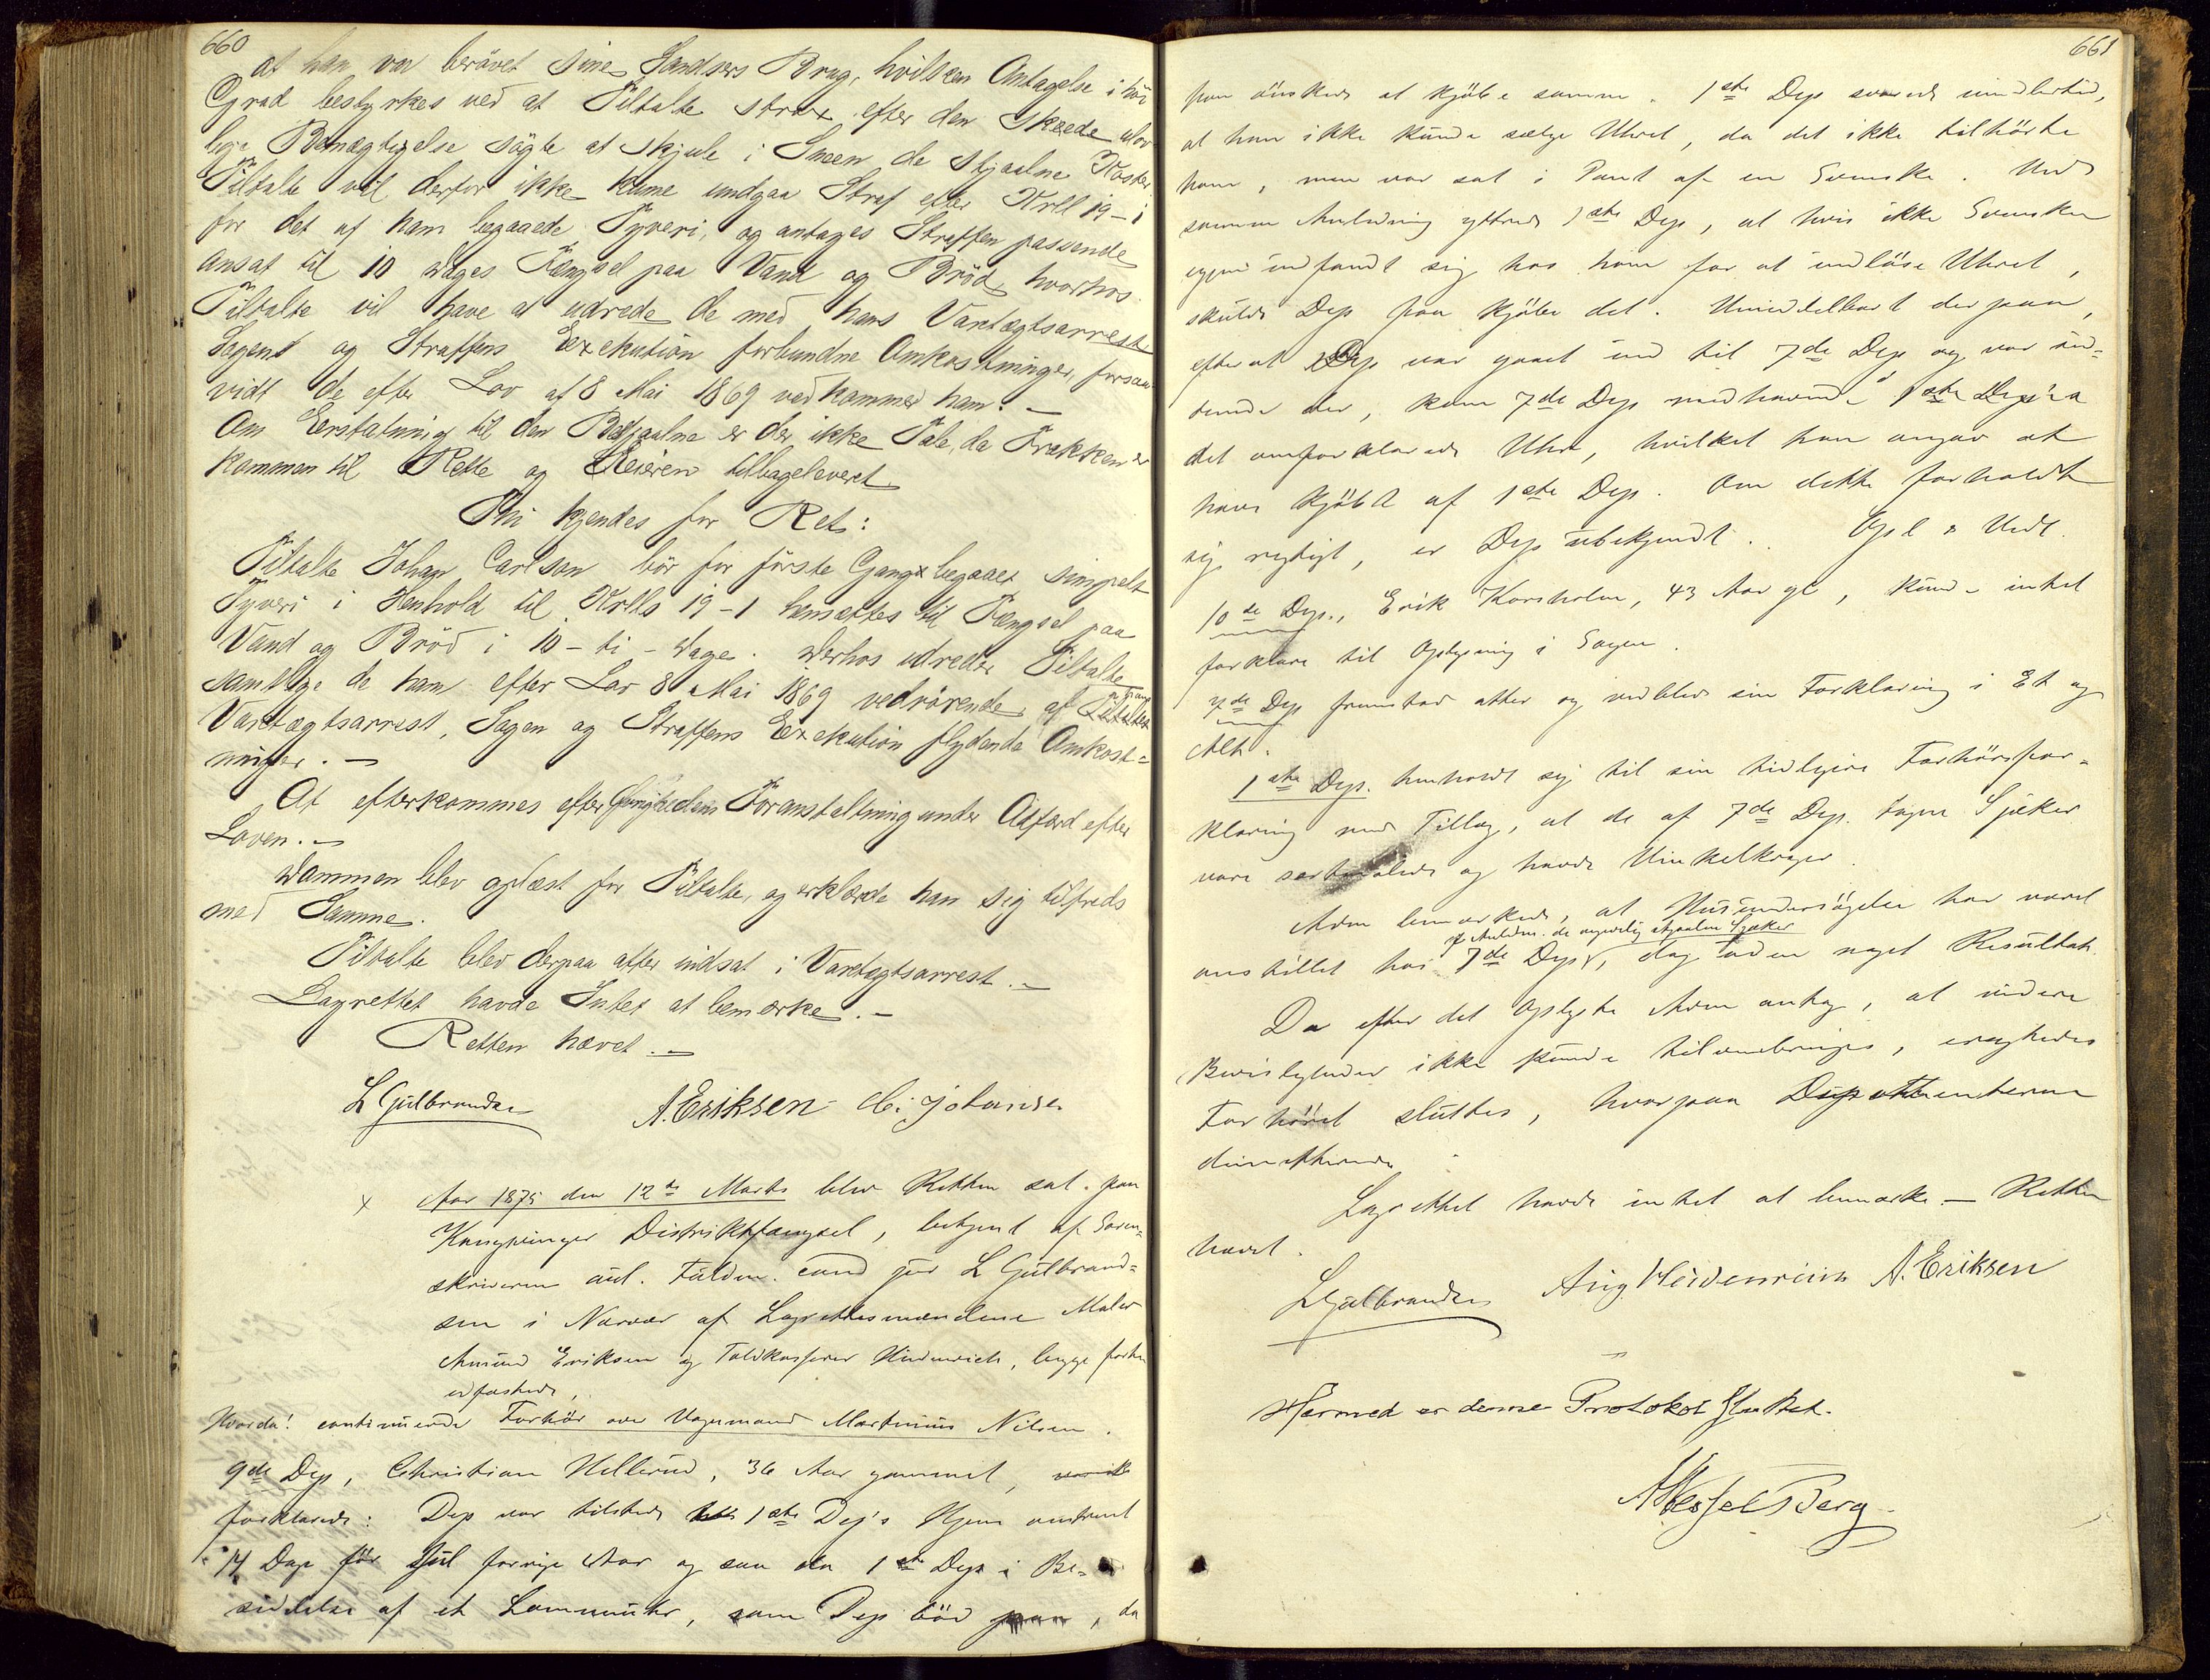 660
at han var berövet sine Sandsers Brug, hvilken Antagelse i höi
Grad bestyrkes ved at Tiltalte strax efter den skeede ulov
lige Bemægtigelse sögte at skjule i Sneen de stjaalne Koster
Tiltalte vil derfor ikke kunne undgaa Straf efter Krll 19-1
for det af ham begaaede Tyveri, og antages Straffen passende
ansat til 10 Dages Fængsel paa Vand og Bröd, hvorhos
Tiltalte vil have at udrede de med hans Varetægtsarrest
Sagens og Straffens Exekution forbundne Omkostninger, forsaa
vidt de efter Lov af 8 Mai 1869 vedkommer ham. —
Om Erstatning til den Bestjaalne er der ikke Tale, da Frakken er
kommen til Rette og Eieren tilbageleveret
Thi kjendes for Ret:
Tiltalte Johan Carlson bör for förste Gang begaaet simpelt
Tyveri i Henhold til Krlls 19-1 hensættes til Fængsel paa
Vand og Bröd i 10 - ti - Dage. Derhos udreder Tiltalte
samtlige de ham efter Lov 8 Mai 1869 vedrörende, af
Varetægtsarrest, Sagen og Straffens Exekution flydende Omkost=
ninger. —
At efterkommes efter Övrighedens Foranstaltning under Adfærd efter
Loven. —
Dommen blev oplæst for Tiltalte, og erklærde han sig tilfreds
med Samme.
Tiltalte blev derpaa atter indsat i Varetægtsarrest. —
Lagrettet havde Intet at bemærke. —
Retten hævet. —
L Gulbrandsen A. Eriksen Chr. Johansen
x Aar 1875 den 12te Marts blev Retten sat paa
Kongsvinger Distriktsfængsel, betjent af Soren=
skriverens aut. Fuldm. cand jur L Gulbrand=
sen i Nærvær af Lagrettesmændene Maler
Amund Eriksen og Toldkasserer Heidenreich, begge forhen
edfæstede,
Hvorda! continuerede Forhör over Vognmand Martinus Nilsen.
9de Dep, Christian Hellerud, 36 Aar gammel,
forklarede: Dep var tilstede 1ste Dep's Hjem omtrent
14 Dage för Jul forrige Aar og saa da 1ste Dep i Be=
siddelse af et Lommeuhr, som Dep böd paa, da
661
han önskede at kjöbe samme. 1ste Dep svarede imidlertid,
at han ikke kunde sælge Uhret, da det ikke tilhörte
ham, men var sat i Pant af en Svenske. Ved
samme Anledning yttrede 1ste Dep, at hvis ikke Svensken
igjen indfandt sig hos ham for at indlöse Uhret,
skulde Dep faa kjöbe det. Umiddelbart derpaa,
efter at Dep var gaaet ind til 7de Dep og var sid=
dende der, kom 7de Dep medhavende 1ste Dep's
det omforklarede Uhr, hvilket han angav at
have kjöbt af 1ste Dep. Om dette forholdt
sig rigtigt, er Dep ubekjendt. Opl & Vedt.
10de Dep., Erik Korsholm, 43 Aar gl, kunde intet
forklare til Oplysning i Sagen.
7de Dep fremstod atter og vedblev sin Forklaring i Et og
Alt.
1ste Dep. henholdt sig til sin tidligere Forhörsfor=
klaring med Tillæg, at de af 7de Dep. tagne Sjæker
vare sortmalede og havde Vinkelkroger.
Adm bemærkede, at Husundersögelse har været
af Anledn. de angivelig stjaalne Sjæker
anstillet hos 7de Dep, dog uden noget Resultat.
Da efter det Oplyste Adm antog, at videre
Bevisligheder ikke kunde tilveiebringes, eragtedes
Forhöret sluttet, hvorpaa Deponenterne
dimitteredes
Lagrettet havde intet at bemærke — Retten
hævet.
L Gulbrandsen Aug Heidenreich A. Eriksen
Hermed er denne Protokol sluttet.
A Wessel Berg